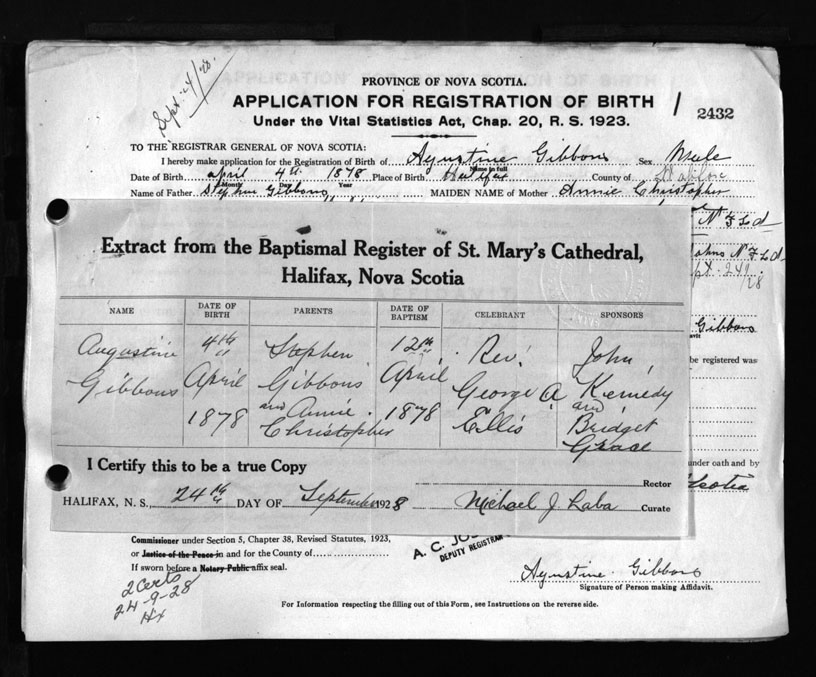 Sept. 24/28.
PROVINCE OF NOVA SCOTIA.
APPLICATION FOR REGISTRATION OF BIRTH
2432
Under the Vital Statistics Act, Chap. 20, R. S. 1923.
TO THE REGISTRAR GENERAL OF NOVA SCOTIA:
I hereby make application for the Registration of Birth of Agustine Gibbons Sex Male
Name in full
Date of Birth April 4th 1878 Place of Birth Halifax County of Halifax
Month Day Year
Name of Father Stephen Gibbons MAIDEN NAME of Mother Annie Christopher
NFLd
Johns NFLd
Sept. 24th
/28
Gibbons
be registered was
under oath and by
Scotia
Extract from the Baptismal Register of St. Mary's Cathedral,
Halifax, Nova Scotia
NAME DATE OF BIRTH PARENTS DATE OF BAPTISM CELEBRANT SPONSORS
Augustine 4th Stephen 12th Rev. John
Gibbons April Gibbons April George A Kennedy
1878 and Annie 1878 Ellis and
Christopher Bridget
Grace
I Certify this to be a true Copy
Rector
HALIFAX, N. S., 24th DAY OF September 1928 Michael J Laba Curate
Commissioner under Section 5, Chapter 38, Revised Statutes, 1923,
or Justice of the Peace in and for the County of
If sworn before a Notary Public affix seal.
A. C. JO
DEPUTY REGISTRAR
2 Certs
24-9-28
Hx
Agustine Gibbons
Signature of Person making Affidavit.
For Information respecting the filling out of this Form, see Instructions on the reverse side.